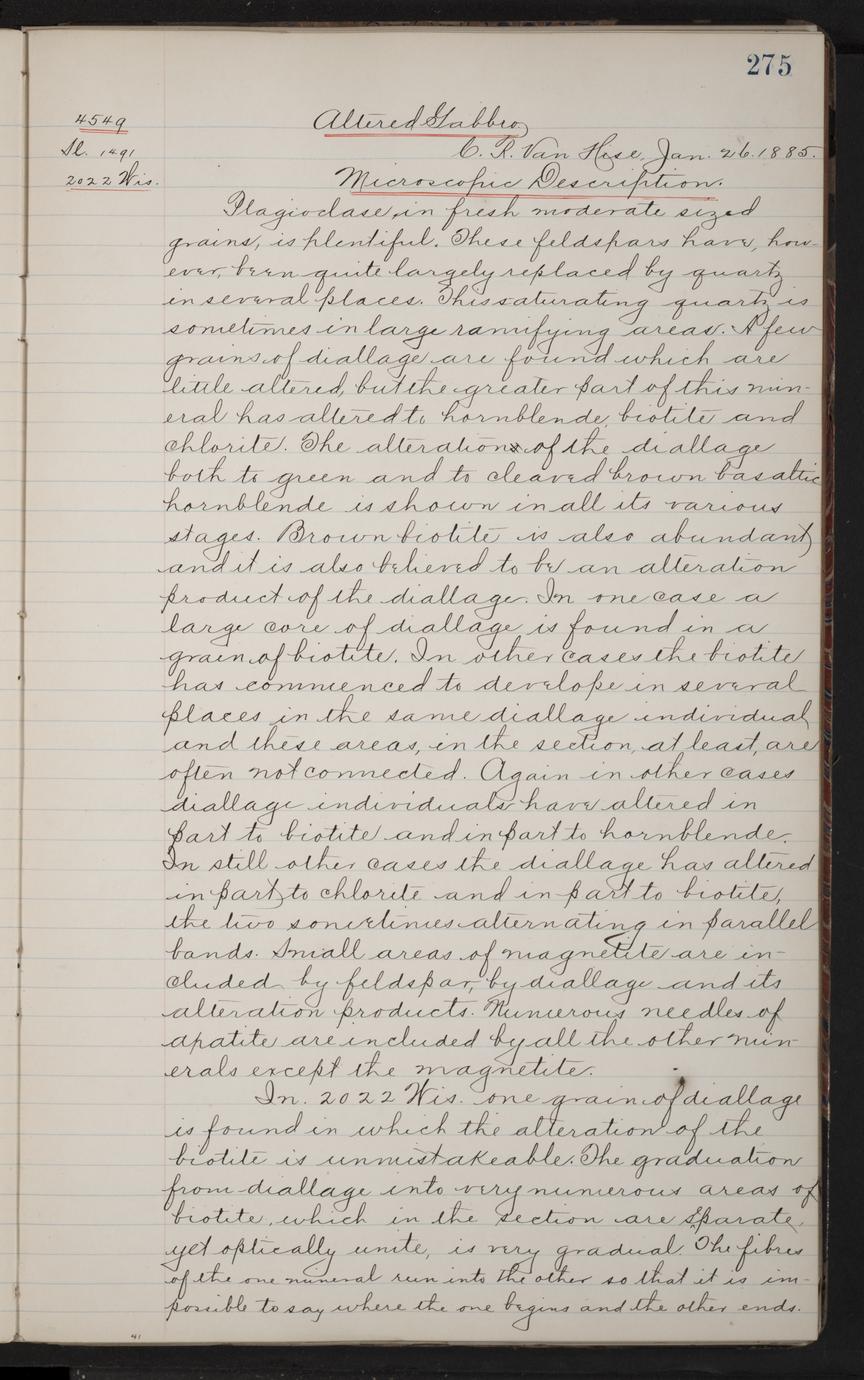 275
4549
Sl. 1491
2022 Wis.
Altered Gabbro,
C. R. Van Hise, Jan. 26. 1885.
Microscopic Description.
Plagioclase, in fresh moderate sized
grains, is plentiful. These feldspars have, how-
ever, been quite largely replaced by quartz
in several places. This saturating quartz is
sometimes in large ramifying areas. A few
grains of diallage are found which are
little altered, but the greater part of this min-
eral has altered to hornblende, biotite and
chlorite. The alteration of the diallage
both to green and to cleaved brown basaltic
hornblende is shown in all its various
stages. Brown biotite is also abundant,
and it is also believed to be an alteration
product of the diallage. In one case a
large core of diallage is found in a
grain of biotite. In other cases the biotite
has commenced to develope in several
places in the same diallage individual,
and these areas, in the section, at least, are
often not connected. Again in other cases
diallage individuals have altered in
part to biotite and in part to hornblende.
In still other cases the diallage has altered
in part, to chlorite and in part to biotite,
the two sometimes alternating in parallel
bands. Small areas of magnetite are in-
cluded by feldspar, by diallage and its
alteration products. Numerous needles of
apatite are included by all the other min-
erals except the magnetite.
In. 2022 Wis. one grain of diallage
is found in which the alteration of the
biotite is unmistakeable. The graduation
from diallage into very numerous areas of
biotite, which in the section are separate,
yet optically unite, is very gradual. The fibres
of the one mineral run into the other so that it is im-
possible to say where the one begins and the other ends.
41